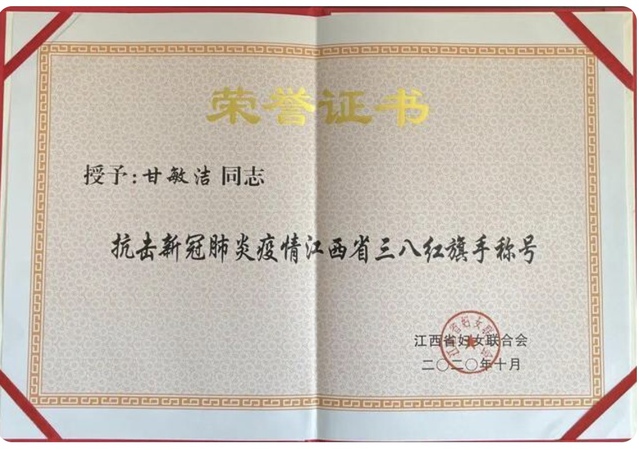 荣誉证书
授予:甘敏洁 同志
抗击新冠肺炎疫情江西省三八红旗手称号
江西省妇女联合会
二〇二〇年十月